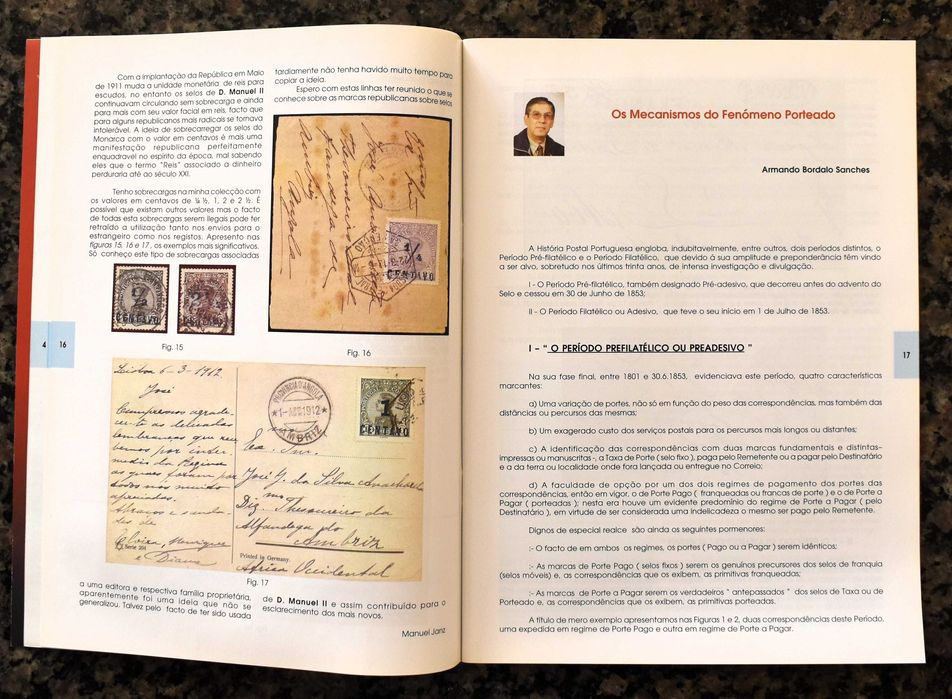 Com a implantação da República em Maio
de 1911 muda a unidade monetária de reis para
escudos, no entanto os selos de D. Manuel II
continuavam circulando sem sobrecarga e ainda
para mais com seu valor facial em reis, facto que
para alguns republicanos mais radicais se tornava
intolerável. A ideia de sobrecarregar os selos do
Monarca com o valor em centavos é mais uma
manifestação republicana perfeitamente
enquadravel no espirito da época, mal sabendo
eles que o termo "Reis" associado a dinheiro
perduraria até ao século XXI.
Tenho sobrecargas na minha colecção com
os valores em centavos de ¼ ½, 1, 2 e 2 ½. É
possível que existam outros valores mas o facto
de todas esta sobrecargas serem ilegais pode ter
retraído a utilização tanto nos envios para o
estrangeiro como nos registos. Apresento nas
figuras 15, 16 e 17, os exemplos mais significativos.
Só conheço este tipo de sobrecargas associadas
CENTAVO
CENTAVO
Fig. 15
tardiamente não tenha havido muito tempo para
copiar a ideia.
Espero com estas linhas ter reunido o que se
conhece sobre as marcas republicanas sobre selos
1/4
CENTAVO
Fig. 16
4 16
Lisboa 6-3-1912
José
Cumprimos agrade-
cer-te as delicadas
lembranças que rece-
bemos por inter-
medio da Regina
as quaes foram por
todos nós muito
apreciadas.
Abraços e sauda-
des de
Elvira, Henrique
e Diana
Serie 204
PROVINCIA D'ANGOLA
1-ABR 1912
AMBRIZ
1
CENTAVO
Exo. Snr.
José J. da Silva
Dig. Thesoureiro da
Alfandega do
Ambriz
Printed in Germany.
Africa Occidental
Fig. 17
a uma editora e respectiva família proprietária,
aparentemente foi uma ideia que não se
generalizou. Talvez pelo facto de ter sido usada
de D. Manuel II e assim contribuído para o
esclarecimento dos mais novos.
Manuel Janz
Os Mecanismos do Fenómeno Porteado
Armando Bordalo Sanches
A História Postal Portuguesa engloba, indubitavelmente, entre outros, dois períodos distintos, o
Período Pré-filatélico e o Período Filatélico, que devido á sua amplitude e preponderância têm vindo
a ser alvo, sobretudo nos últimos trinta anos, de intensa investigação e divulgação.
I - O Período Pré-filatélico, também designado Pré-adesivo, que decorreu antes do advento do
Selo e cessou em 30 de Junho de 1853;
II - O Período Filatélico ou Adesivo, que teve o seu inicio em 1 de Julho de 1853.
I – " O PERÍODO PREFILATÉLICO OU PREADESIVO "
17
Na sua fase final, entre 1801 e 30.6.1853, evidenciava este período, quatro características
marcantes:
a) Uma variação de portes, não só em função do peso das correspondências, mas também das
distâncias ou percursos das mesmas;
b) Um exagerado custo dos serviços postais para os percursos mais longos ou distantes;
c) A identificação das correspondências com duas marcas fundamentais e distintas-
impressas ou manuscritas -, a Taxa de Porte ( selo fixo ), paga pelo Remetente ou a pagar pelo Destinatário
e a da terra ou localidade onde fora lançada ou entregue no Correio;
d) A faculdade de opção por um dos dois regimes de pagamento dos portes das
correspondências, então em vigor, o de Porte Pago ( franqueadas ou francas de porte ) e o de Porte a
Pagar ( porteadas ); nesta era houve um evidente predomínio do regime de Porte a Pagar ( pelo
Destinatário ), em virtude de ser considerada uma indelicadeza o mesmo ser pago pelo Remetente.
Dignos de especial realce são ainda os seguintes pormenores:
:- O facto de em ambos os regimes, os portes ( Pago ou a Pagar ) serem idênticos;
:- As marcas de Porte Pago ( selos fixos ) serem os genuínos precursores dos selos de franquia
(selos móveis) e, as correspondências que os exibem, as primitivas franqueadas;
:- As marcas de Porte a Pagar serem os verdadeiros " antepassados " dos selos de Taxa ou de
Porteado e, as correspondências que os exibem, as primitivas porteadas.
A título de mero exemplo apresentamos nas Figuras 1 e 2, duas correspondências deste Período,
uma expedida em regime de Porte Pago e outra em regime de Porte a Pagar.